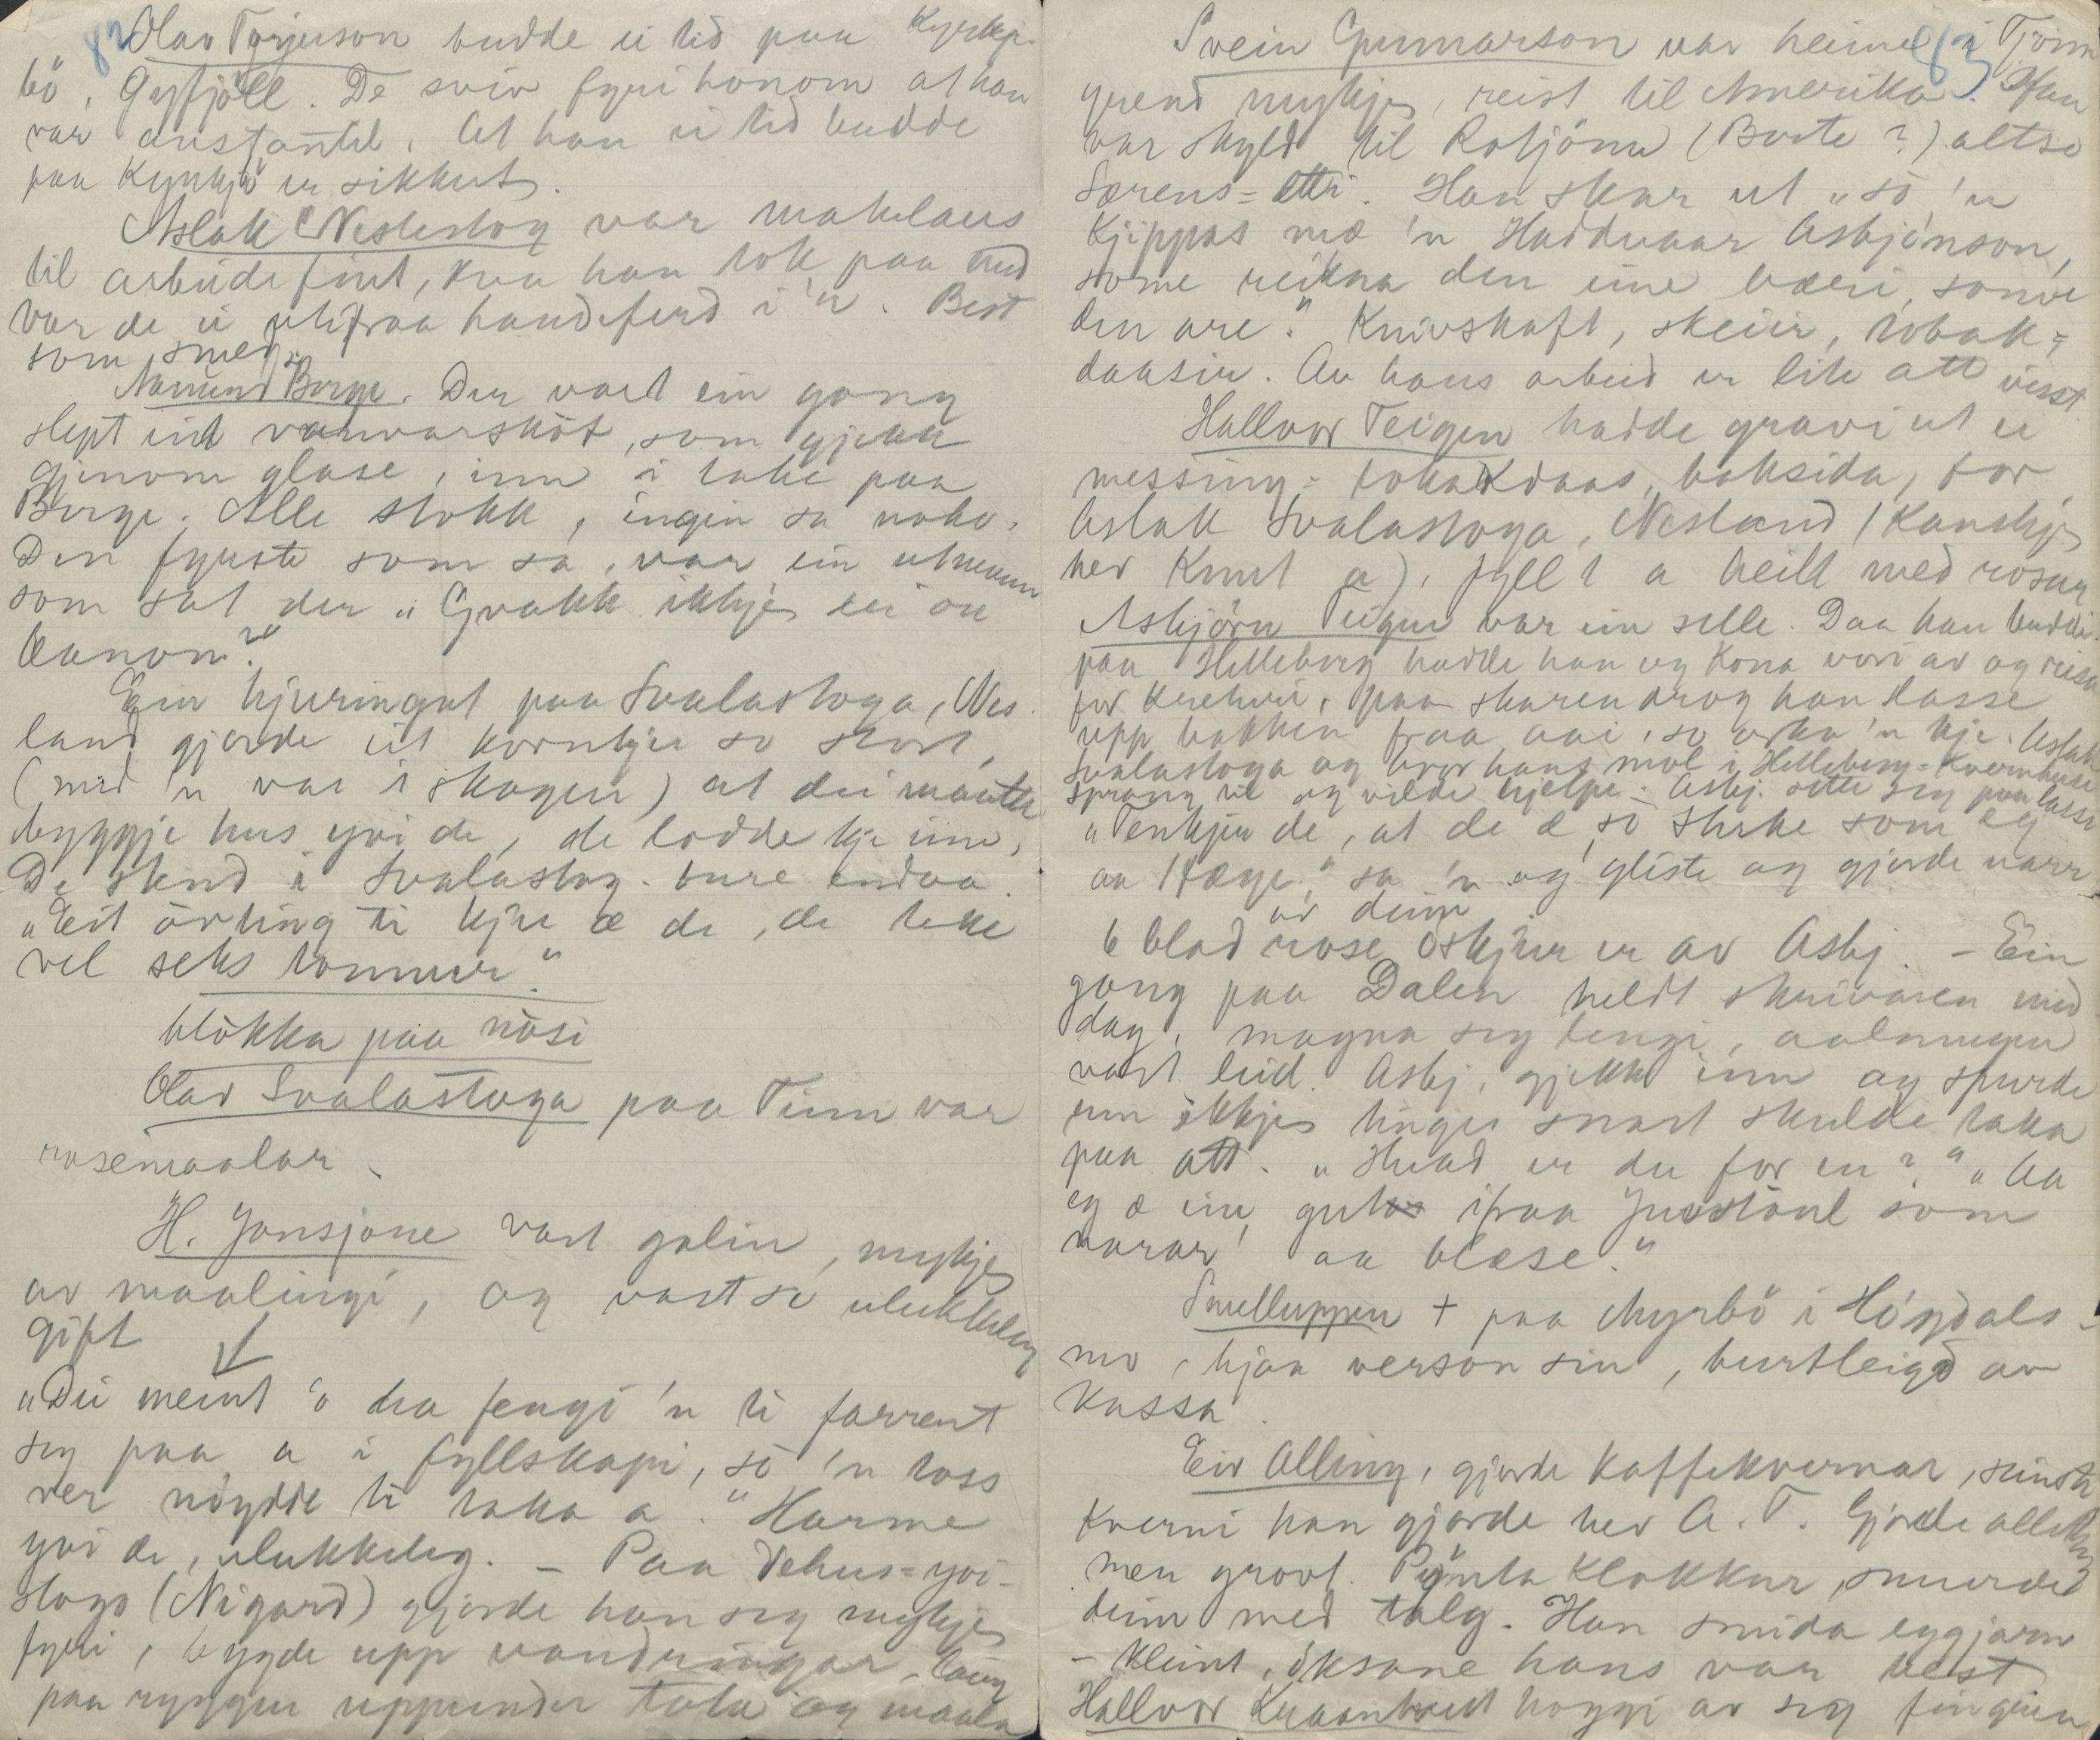 82
Olav Torjuson budde ei tid paa Kyrkje-
bö, Gyfjöll. De sviv fyri honom at han
var austantil. At han ei tid budde
paa Kyrkjebö er sikkert.
Aslak Nestestog var makelaus
til arbeide fint, kva han tok paa med
var de ei utifraa handeferd i 'n. Best
som smed.
Aamund Berge. Der vart ein gong
slept eit vaavaarsköt, som gjekk
gjenom glase, inn i take paa
Berge. Alle stokk, ingin sa noko.
Den fyrste som sa, var ein utmann
som sat der "Gvakk ikkje ei ou
banom?"
Ein hjuringut paa Svalastoga, Nes-
land gjorde eit kornkjer so stort,
(med 'n var i skogen) at dei maatte
byggje hus yvi de, de lodde kje inn,
De stend i Svalastog-bure endaa.
"Eit örting ti kjer æ de, de teke
vel seks tonnur."
blökka paa nösi
Olav Svalastoga paa Tinn var
rosemaalar.
H. Jonsjone vart galin, mykje
av maalingi, og vart so ulukkeleg
gift
"Dei meint 'o ha fengi 'n ti farrent
seg paa a i fyllskapi, so 'n toss
ver nöydde ti taka a." Harme
yvi de, ulukkeleg. – Paa Vehus-yvi-
stogo (Nigard) gjorde han seg mykje
fyri, bygde upp vandringar, laag
paa ryggen uppunder tak og maala
83
Svein Gunnarson var heime i Tjönn-
grend mykje, reist til Amerika. Han
var skyld til Rotjönn (Borte ?) altso
Sorens-ætti. Han skar ut "so 'n
kjippas mæ 'n Hadduaar Asbjönson,
some reikna den eine bæri, some
den are." Knivskaft, skeier, tobak-
daasir. Av hans arbeid er lite att visst
Hallvor Teigen hadde gravi ut ei
messing-tobakdaas, baksida, for
Aslak Svalastoga, Nesland (Kanskje
hev Knut a), fyllt a heilt med rosur
Asbjörn Teigen var ein selle. Daa han budde
paa Helleberg hadde han og kona vori av og reisa
for krehvi, paa skaren drog han lasse
upp bakken fraa aai, so orka 'n kje. Aslak
Svalastoga og bror hans mol i Helleberg-kvernhuse
sprang til og vilde hjelpe. Asbj. sette seg paa lasse
"Tenkjer de, at de æ so sterke som eg
aa Hæge," sa 'n og gliste og gjorde narr
av deim
6 blad rose öskjur er av Asbj. – Ein
gong paa Dalen heldt skrivaren mid-
dag, magna seg lengi, aalmugen
vart leid. Asbj. gjekk inn og spurde
um ikkje tinge snart skulde taka
paa att. "Hvad er du for en?" "Aa
eg æ ein gut ifraa Juvstöul som
varar aa blæse."
Smelluppen + paa Myrbö i Höydals-
mo, hjaa verson sin, burtleigd av
kassa.
Eiv Alling, gjorde kaffekvernar, seinste
kverni han gjorde hev A. T. Gjorde alleting
men grovt. Pynta klokkur, smurde
deim med talg. Han smida eggjarn
– kleint, öksane hans var best
Hallvor Kraantveit hoggi av seg fingren